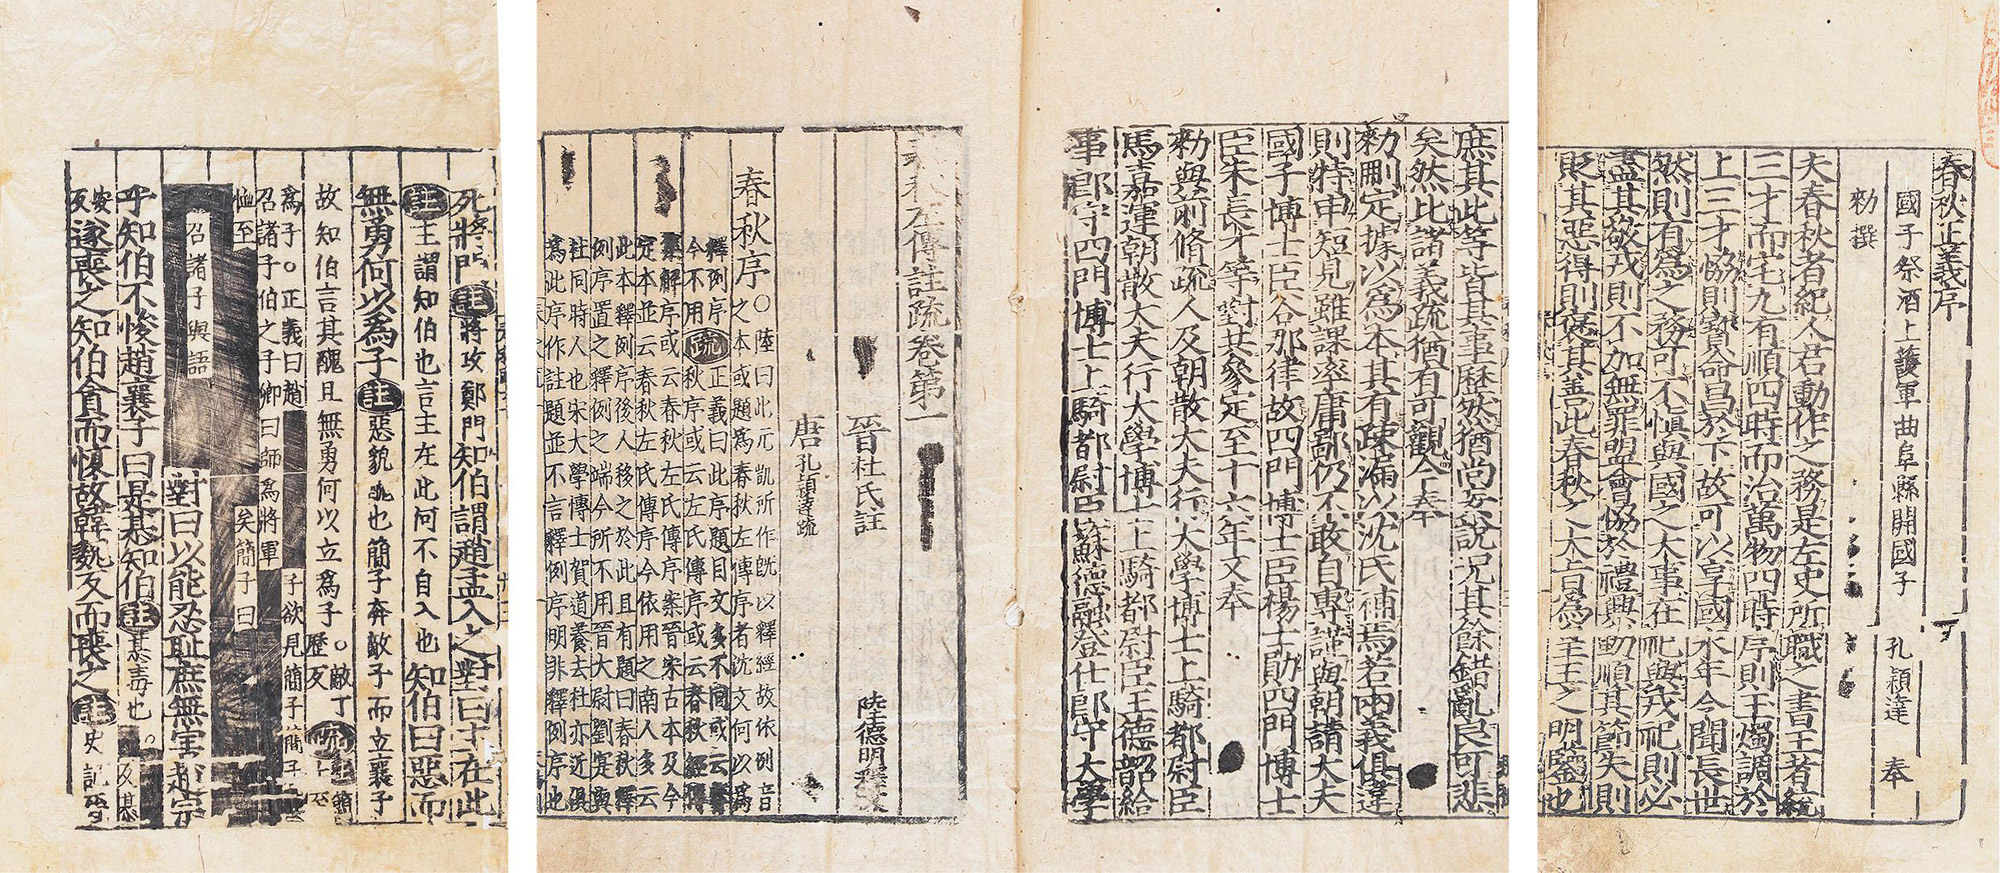 春秋正義序
國子祭酒上護軍曲阜縣開國子 孔穎達 奉
勑撰
夫春秋者紀人君動作之務是左史所職之書王者統
三才而宅九有順四時而治萬物四時序則玉燭調於
上三才恊則寶命昌於下故可以享國永年令聞長世
然則有爲之務可不愼與國之大事在祀與戎祀則必
盡其敬戎則不加無罪盟會恊於禮興動順其節失則
貶其惡得則褒其善此春秋之大旨爲皇王之明鑒也
庶其此等皆其事歷然猶尚妄說況其餘錯亂良可悲
矣然比諸義疏猶有可觀今奉
勑刪定據以爲本其有疎漏以沈氏補焉若兩義俱違
則特申短見雖課率庸鄙仍不敢自專謹與朝請大夫
國子博士臣谷那律故四門博士臣楊士勛四門博士
臣朱長才等對共參定至十六年又奉
勑與前脩疏人及朝散大夫行大學博士上騎都尉臣
馬嘉運朝散大夫行大學博士上騎都尉臣王德韶給
事郎守四門博士上騎都尉臣蘇德融登仕郎守大學
春秋左傳註疏卷第一
晉杜氏註 陸德明釋文
唐孔穎達疏
春秋序○陸曰此元凱所作旣以釋經故依例音
之本或題爲春秋左傳序者沈文何以爲
釋例序今不用 疏 正義曰此序題目文多不同或云春
秋序或云左氏傳序或云春秋經傳
集解序或云春秋左氏傳序案晉宋古本及今
定本並云春秋左氏傳序今依用之南人多云
此本釋例序後人移之於此且有題曰春秋釋
例序置之釋例之端今所不用晉大尉劉寔與
杜同時人也宋大學博士賀道養去杜亦近俱
爲此序作註題並不言釋例序明非釋例序也
死將門 註 將攻鄭門知伯謂趙孟入之對曰主在此
註 主謂知伯也言主在此何不自入也知伯曰惡而
無勇何以爲子 註 惡貌醜也簡子弃敵子而立襄子
故知伯言其醜且無勇何以立爲子
爲子○正義曰趙
子欲見簡子簡子
召諸子伯之子卿曰師爲將軍
矣簡子曰
召諸子與語
對曰以能忍恥庶無害趙宗
乎知伯不悛趙襄子曰是惎知伯 註 惎毒也
遂喪之知伯貪而愎故韓魏反而喪之 註 史記晉